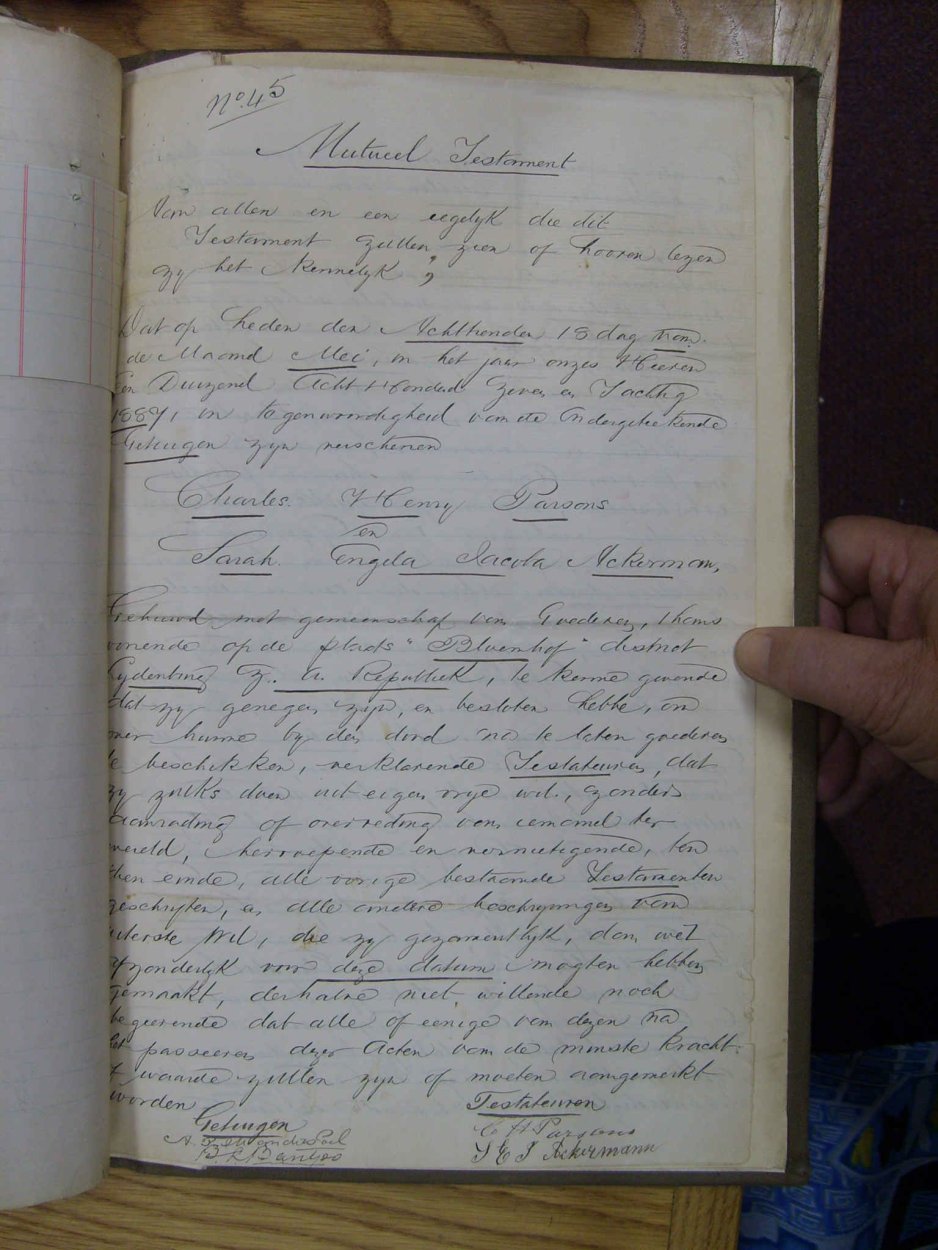 No. 45
Mutueel Testament
Van allen en een iegelyk die dit
Testament zullen zien of hooren lezen
zy het kennelyk ;
Dat op heden den Achttienden 18 dag van
de Maand Mei, in het jaar onzes Heeren
Een Duizend Acht Honderd Zeven en Tachtig
1887, in tegenwoordigheid van de Ondergetekende
Getuigen zyn verschenen
Charles Henry Parsons
en
Sarah Engela Jacoba Ackerman,
Gehuwd met gemeenschap van Goederen, thans
wonende op de plaats "Bloemhof" district
Lydenburg Z. A. Republiek, te kenne gevende
dat zy genegen zyn, en besloten hebbe, om
over hunne by den dood na te laten goederen
te beschikken, verklarende Testateuren, dat
zy zulks doen uit eigen vrye wil, zonder
aanrading of overreding van iemand ter
wereld, herroepende en vernietegende, ten
dien einde, alle vorige bestaande Testamenten
geschriften, en alle andere beschryvingen van
uiterste Wil, die zy gezamentlyk, dan wel
afzonderlyk voor deze datum mogten hebben
gemaakt, derhalve niet willende noch
begeerende dat alle of eenige van dezen na
het passeeren dezer Acten van de minste kracht
of waarde zullen zyn of moeten aangemerkt
worden
Getuigen Testateuren
C H Parsons
S E J Ackermann